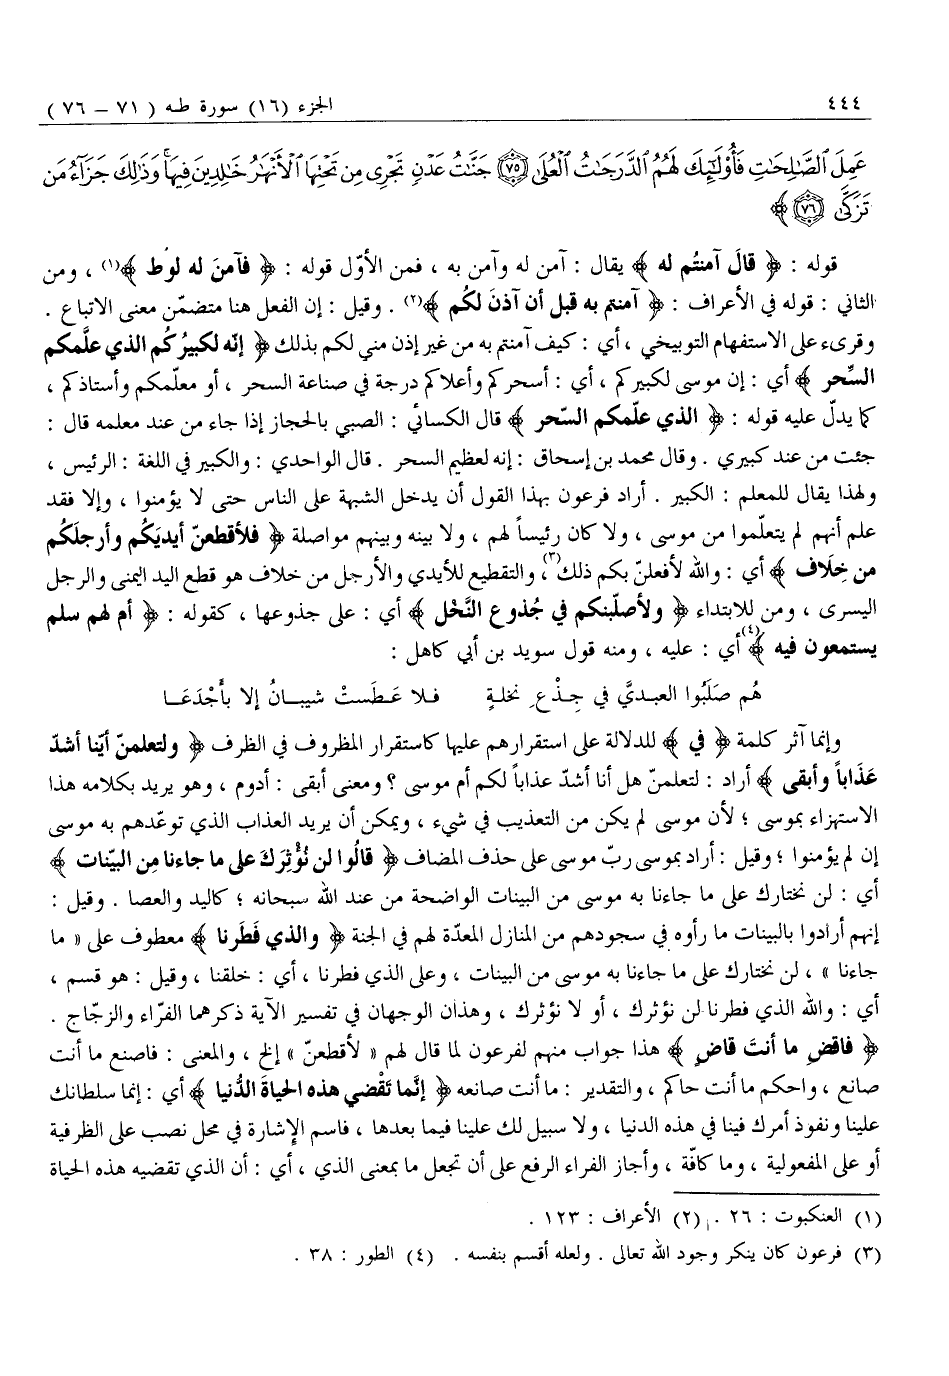 ٤٤٤ الجزء (١٦) سورة طـه ( ٧١ – ٧٦ )
عَمِلَ ٱلصَّٰلِحَٰتِ فَأُو۟لَٰٓئِكَ لَهُمُ ٱلدَّرَجَٰتُ ٱلْعُلَىٰ ٧٥ جَنَّٰتُ عَدْنٍ تَجْرِى مِن تَحْتِهَا ٱلْأَنْهَٰرُ خَٰلِدِينَ فِيهَا ۚ وَذَٰلِكَ جَزَآءُ مَن
تَزَكَّىٰ ٧٦ ﴾
قوله : ﴿ قالَ آمنتُم له ﴾ يقال : آمن له وآمن به ، فمن الأوّل قوله : ﴿ فآمنَ له لوُط ﴾(١) ، ومن
الثاني : قوله في الأعراف : ﴿ آمنتم به قبل أن آذنَ لكُم ﴾(٢) . وقيل : إن الفعل هنا متضمّن معنى الاتباع .
وقرىء على الاستفهام التوبيخي ، أي : كيف آمنتم به من غير إذن مني لكم بذلك ﴿ إنّه لكبيرُكُم الذي علَّمكم
السِّحر ﴾ أي : إن موسى لكبيركم ، أي : أسحركم وأعلاكم درجة في صناعة السحر ، أو معلّمكم وأستاذكم ،
كما يدلّ عليه قوله : ﴿ الذي علّمكم السّحر ﴾ قال الكسائي : الصبي بالحجاز إذا جاء من عند معلمه قال :
جئت من عند كبيري . وقال محمد بن إسحاق : إنه لعظيم السحر . قال الواحدي : والكبير في اللغة : الرئيس ،
ولهذا يقال للمعلم : الكبير . أراد فرعون بهذا القول أن يدخل الشبهة على الناس حتى لا يؤمنوا ، وإلا فقد
علم أنهم لم يتعلّموا من موسى ، ولا كان رئيساً لهم ، ولا بينه وبينهم مواصلة ﴿ فلأقطعنّ أيديَكُم وأرجلَكُم
من خِلَاف ﴾ أي : والله لأفعلنّ بكم ذلك(٣)، والتقطيع للأيدي والأرجل من خلاف هو قطع اليد اليمنى والرجل
اليسرى ، ومن للابتداء ﴿ ولأصلّبنكم في جُذوع النَّخْل ﴾ أي : على جذوعها ، كقوله : ﴿ أم لهم سلم
يستمعون فيه ﴾(٤) أي : عليه ، ومنه قول سويد بن أبي كاهل :
هُم صَلَبُوا العبديَّ في جِذْعِ نخلةٍ فلا عَطَسَتْ شيبانُ إلا بأَجْدَعَا
وإنما آثر كلمة ﴿ في ﴾ للدلالة على استقرارهم عليها كاستقرار المظروف في الظرف ﴿ ولتعلمنّ أيّنا أشدّ
عَذَاباً وأبقى ﴾ أراد : لتعلمنّ هل أنا أشدّ عذاباً لكم أم موسى ؟ ومعنى أبقى : أدوم ، وهو يريد بكلامه هذا
الاستهزاء بموسى ؛ لأن موسى لم يكن من التعذيب في شيء ، ويمكن أن يريد العذاب الذي توعّدهم به موسى
إن لم يؤمنوا ؛ وقيل : أراد بموسى ربّ موسى على حذف المضاف ﴿ قالُوا لن نُؤْثِرَكَ على ما جاءنا مِن البيّنات ﴾
أي : لن نختارك على ما جاءنا به موسى من البينات الواضحة من عند الله سبحانه ؛ كاليد والعصا . وقيل :
إنهم أرادوا بالبينات ما رأوه في سجودهم من المنازل المعدّة لهم في الجنة ﴿ والذي فَطَرنا ﴾ معطوف على « ما
جاءنا » ، لن نختارك على ما جاءنا به موسى من البينات ، وعلى الذي فطرنا ، أي : خلقنا ، وقيل : هو قسم ،
أي : والله الذي فطرنا لن نؤثرك ، أو لا نؤثرك ، وهذان الوجهان في تفسير الآية ذكرهما الفرّاء والزجّاج .
﴿ فاقضِ ما أنتَ قاضٍ ﴾ هذا جواب منهم لفرعون لما قال لهم « لأقطعنّ » إلخ ، والمعنى : فاصنع ما أنت
صانع ، واحكم ما أنت حاكم ، والتقدير : ما أنت صانعه ﴿ إنَّما تَقْضي هذه الحياةَ الدُّنيا ﴾ أي : إنما سلطانك
علينا ونفوذ أمرك فينا في هذه الدنيا ، ولا سبيل لك علينا فيما بعدها ، فاسم الإشارة في محل نصب على الظرفية
أو على المفعولية ، وما كافّة ، وأجاز الفراء الرفع على أن تجعل ما بمعنى الذي ، أي : أن الذي تقضيه هذه الحياة
(١) العنكبوت : ٢٦ . (٢) الأعراف : ١٢٣ .
(٣) فرعون كان ينكر وجود الله تعالى . ولعله أقسم بنفسه . (٤) الطور : ٣٨ .